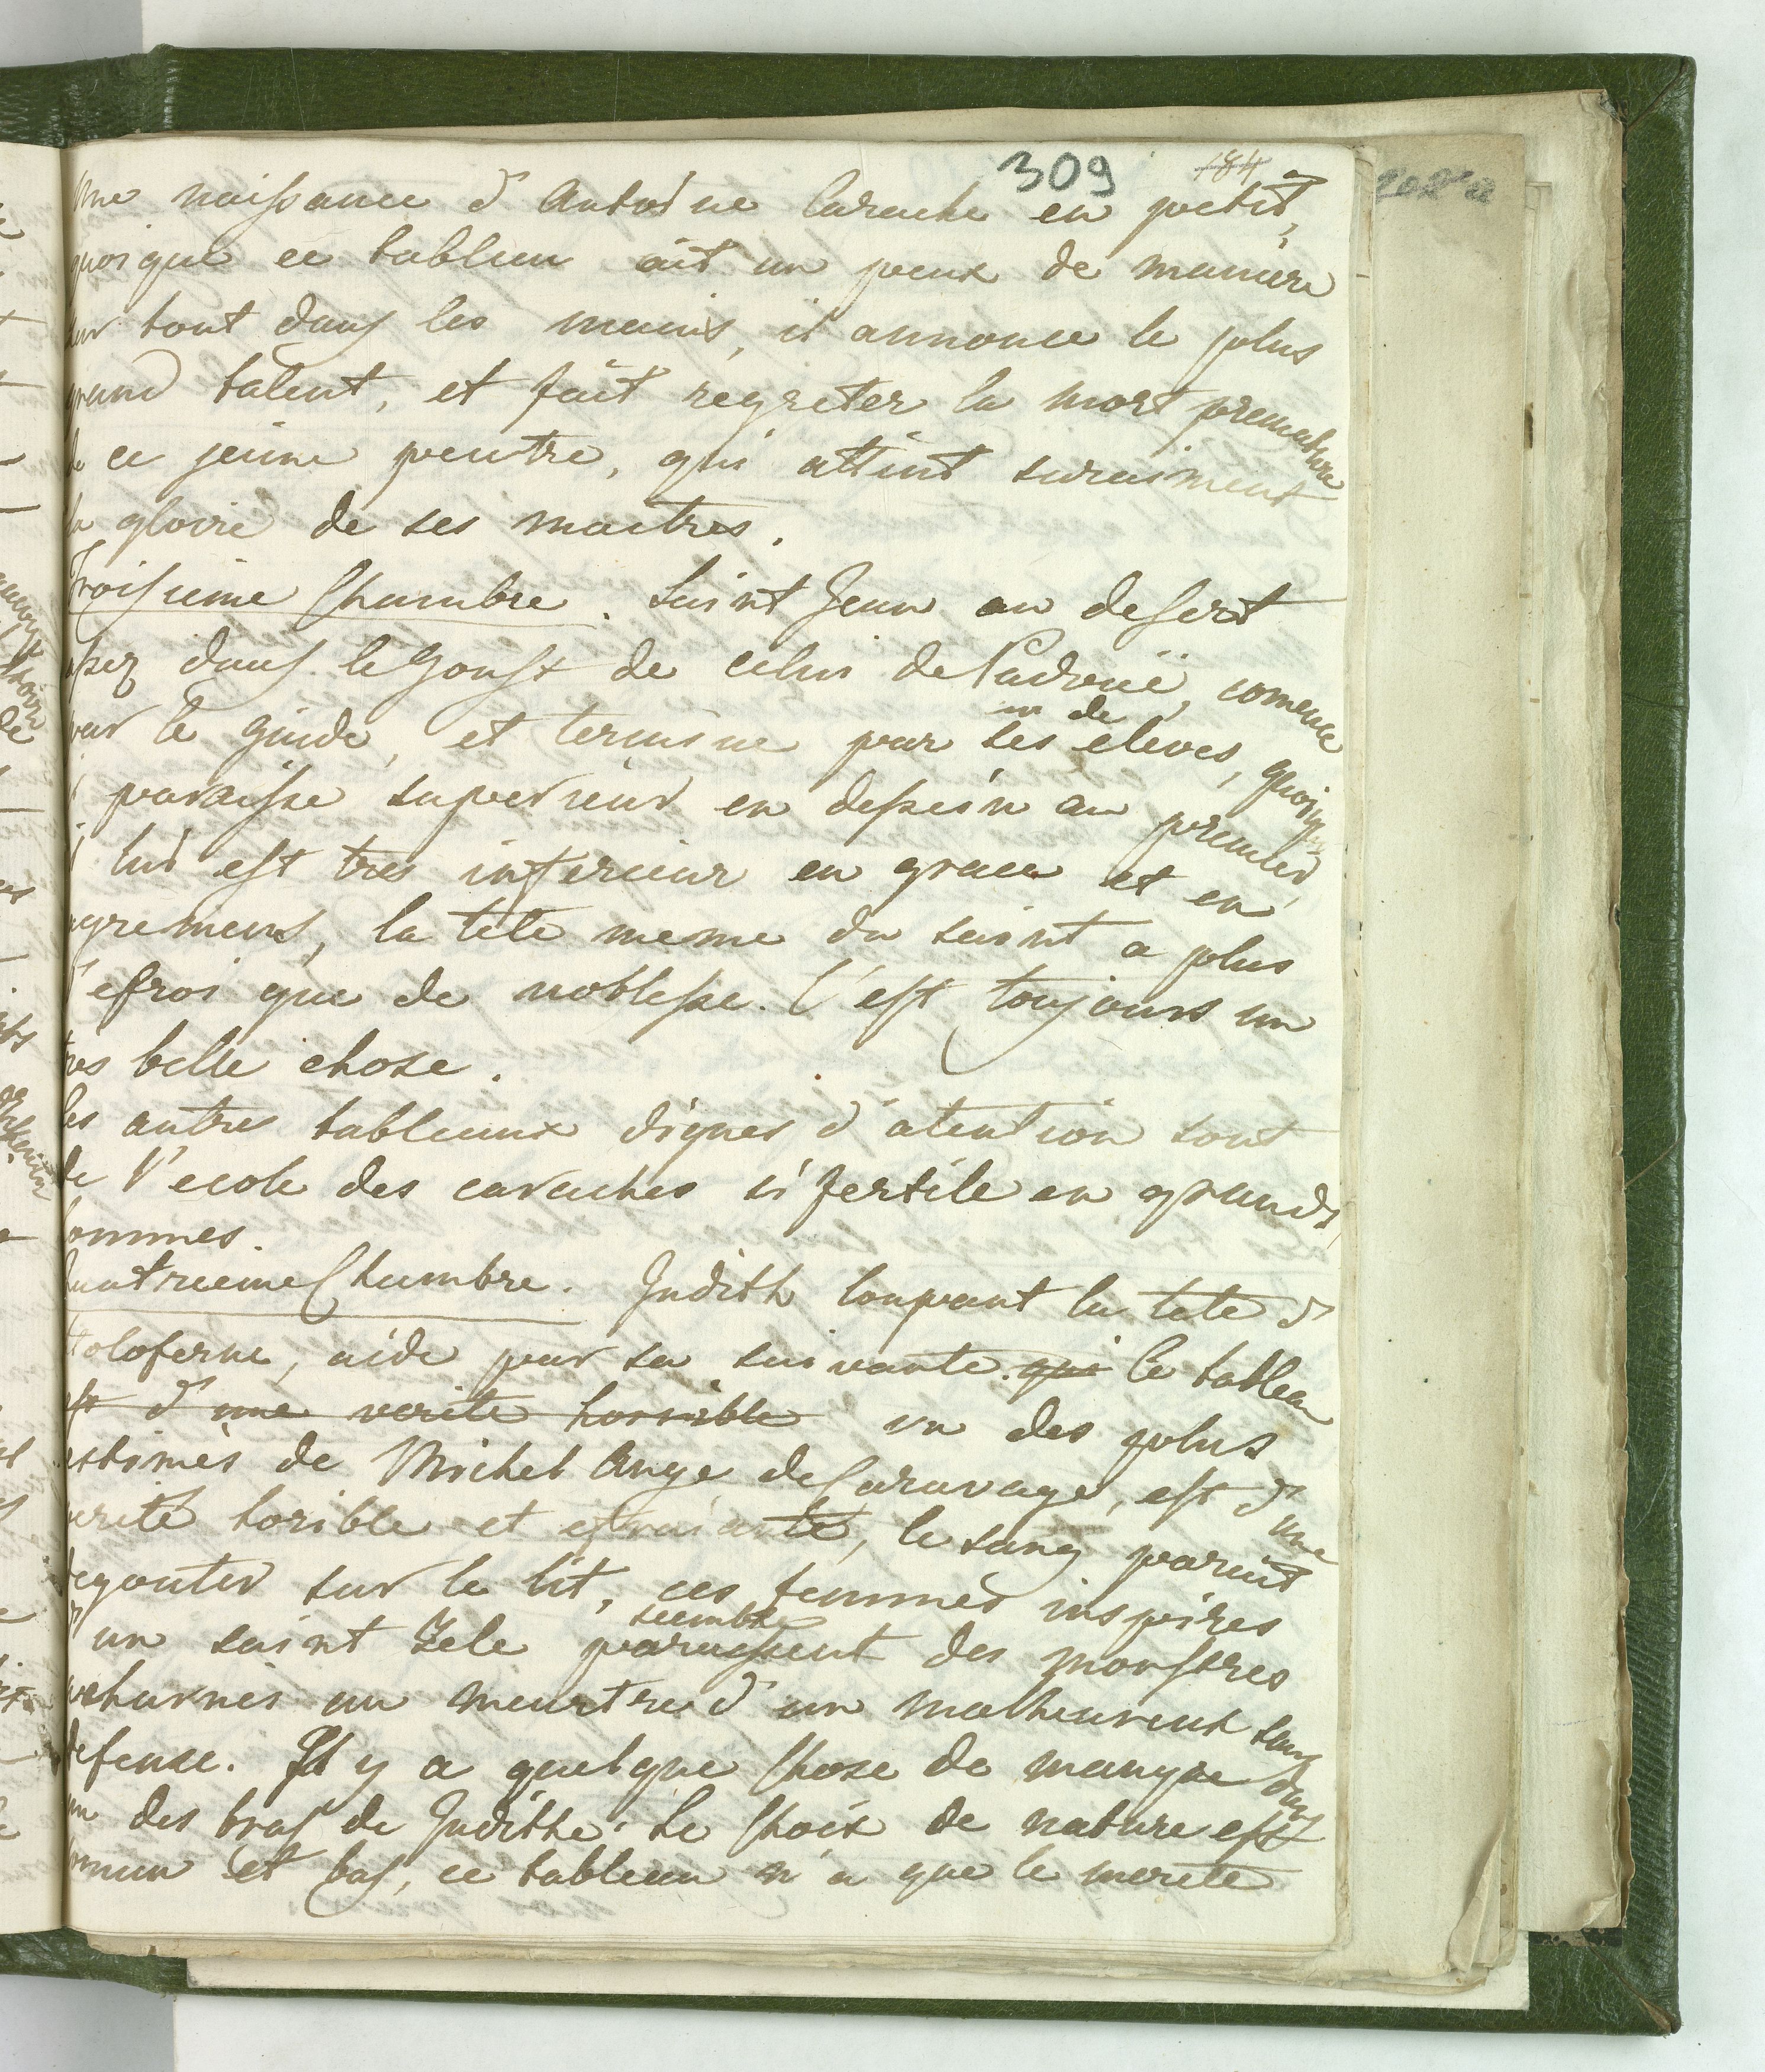 309 184
Une naissance d'Antoine Carache en petit,
quoique ce tableau ait un peux de maniere
sur tout dans les mains, il annonce le plus
grand talent, et fait regreter la mort premature
de ce jeune peintre, qui attint suraiment
la gloire de ses maitres.
Troisieme Chambre. Saint Jean au desert
assez dans le Goust de celui de Padoüe, comence
par le guide, et termine par un de ses eleves, quoique
il paraisse superieur en dessein au premier,
il lui est tres inferieur en grace et en
agremens, la tete meme du saint a plus
d'efroi que de noblesse. C'est toujours un
tres belle chose.
les autres tableaux dignes d'atention sont
de l'ecole des caraches si fertile en grands
hommes.
Quatrieme Chambre. Judith Coupant la tete d'
Holoferne, aidé par sa suivante. qui Ce tableau
est d'une verite horrible un des plus
estimès de Michel Ange de Caravage, est d'une
verité horible et efraiante, le sang parait
degouter sur le lit, ces femmes inspires
d'un saint zele semble paraissent des monstres
acharnès au meurtre d'un malheureux sans
defense. Il y a quelque Chose de manqué dans
un des bras de Judithe. Le Choix de nature est
comun et bas, ce tableau n'a que le merite